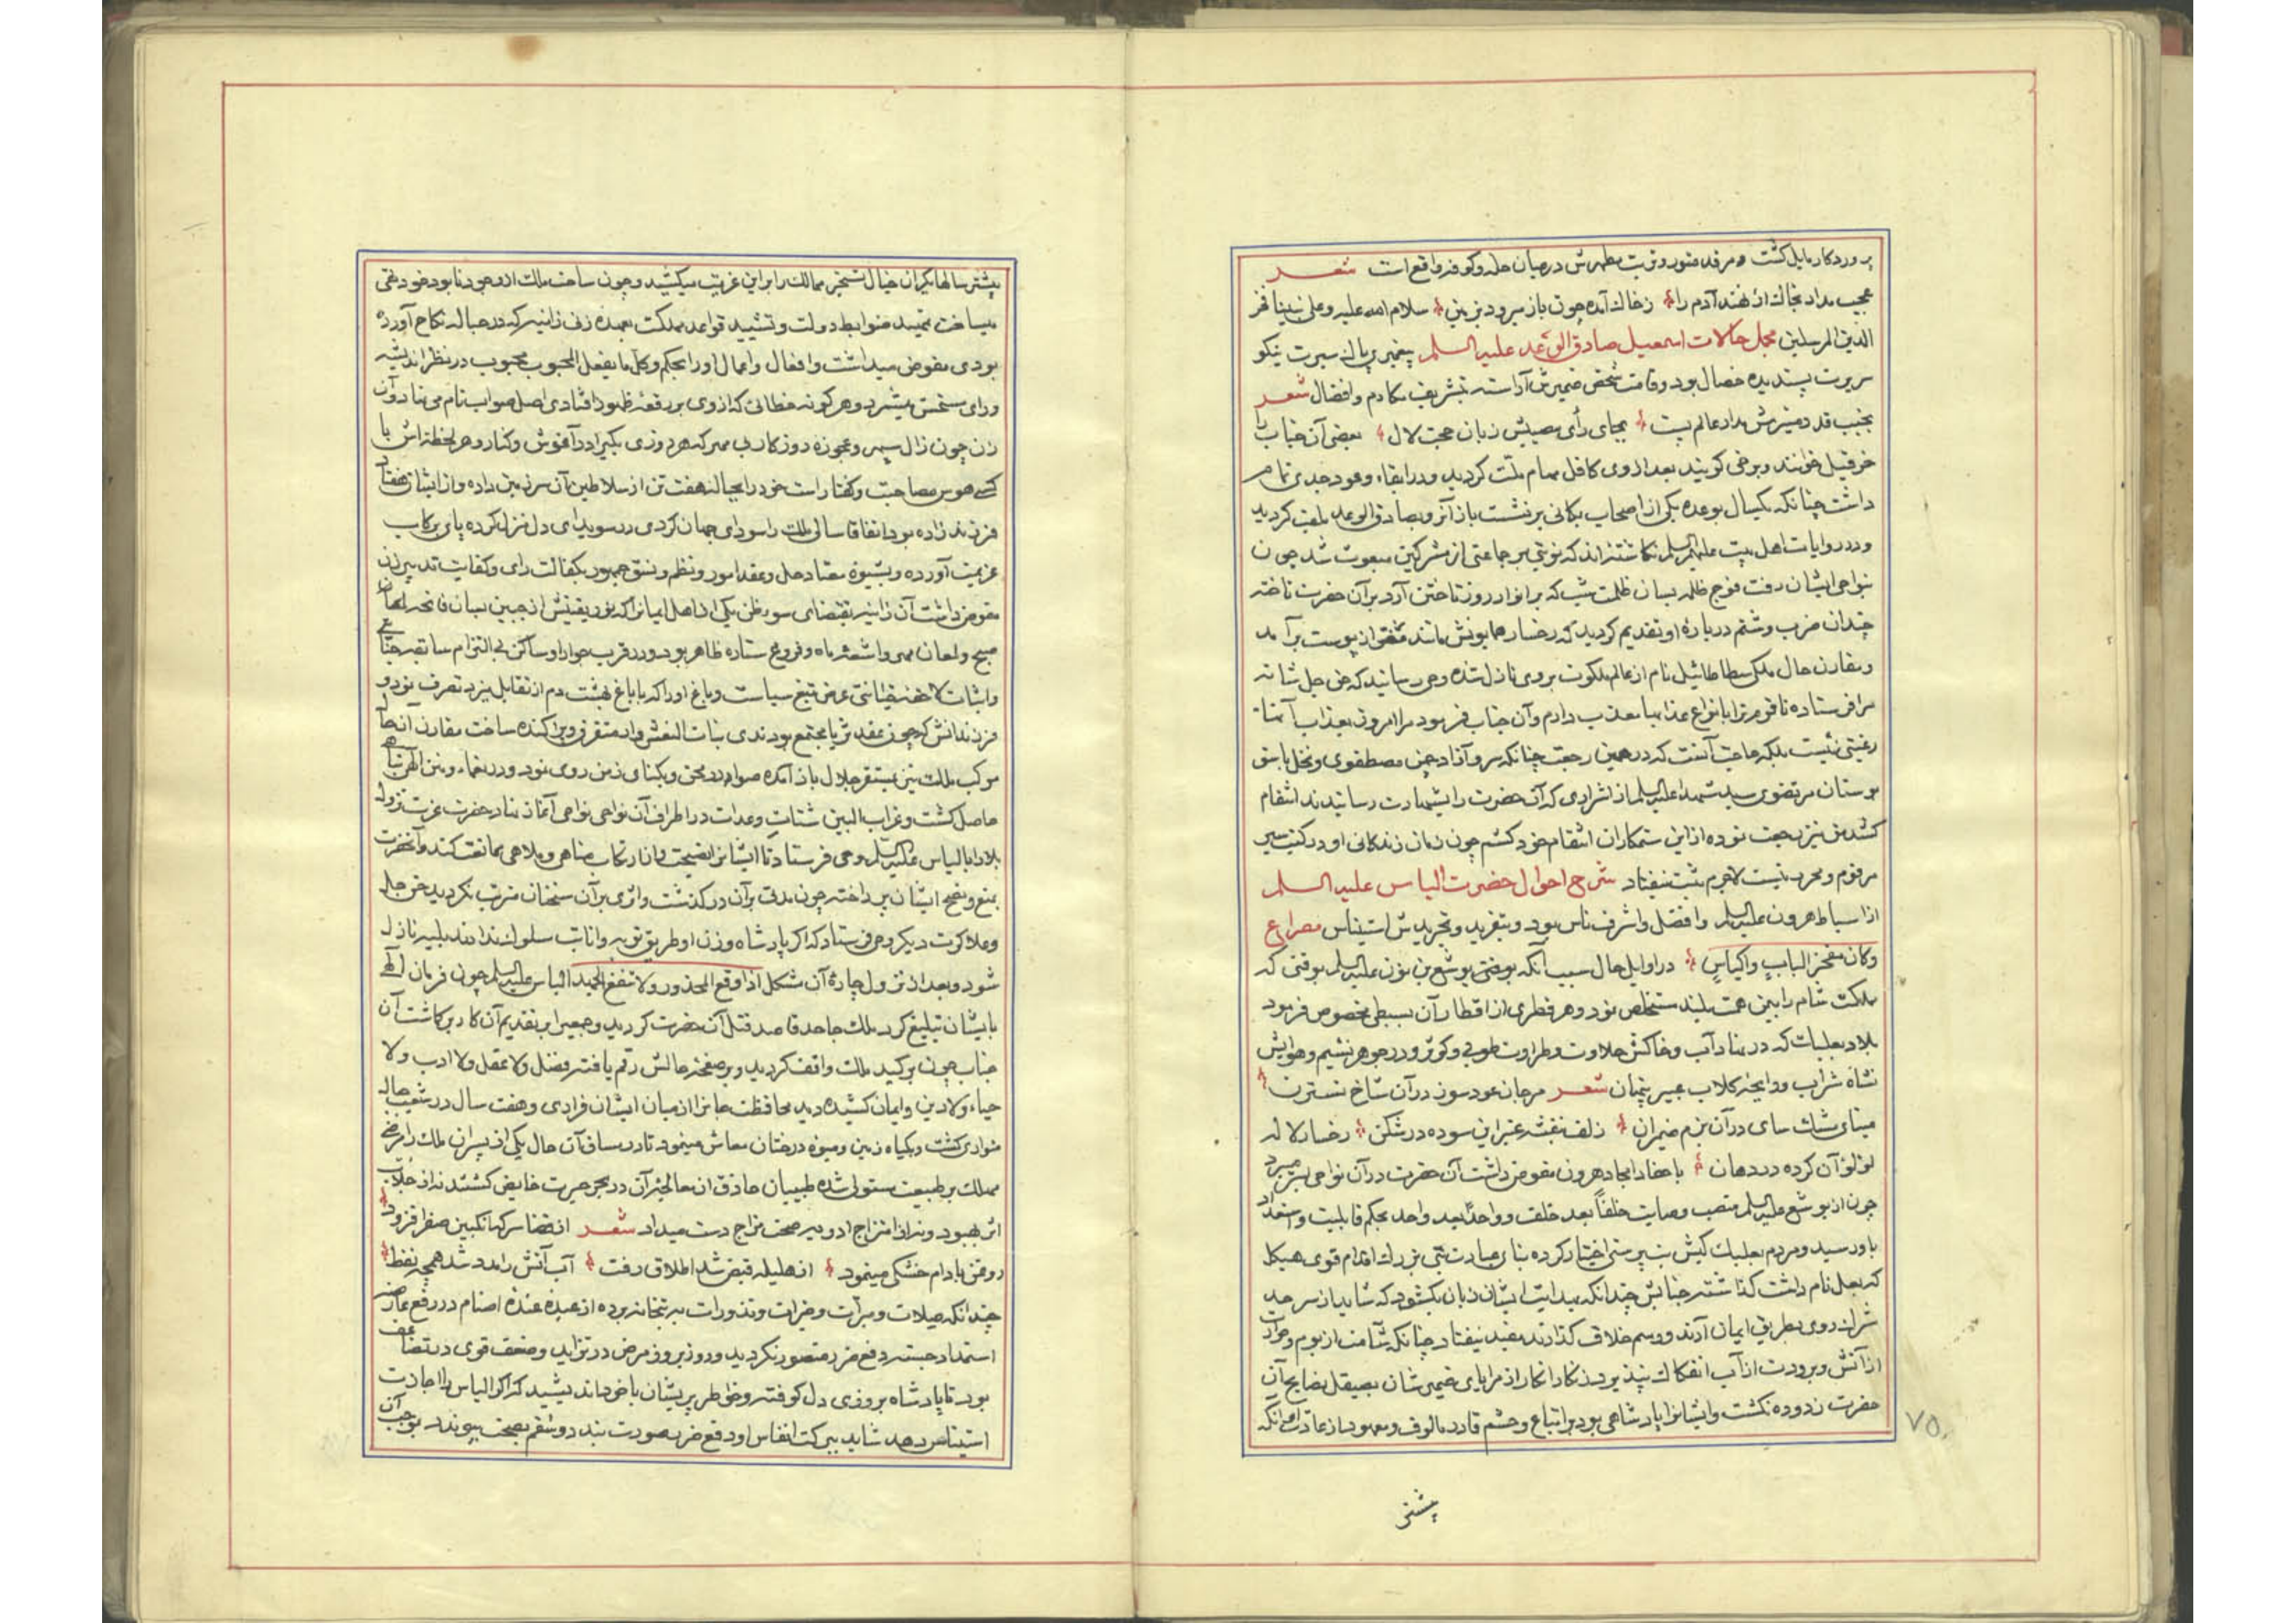 پروردکار مایل کشت و مرقد منور و تربت مطهرش در میان حله و کوفه واقع است شعـــر
عجب مداد نخالت از نهند آدم را زخاك آمده چون باز میرود بزمین سلام الله علیه و علی نبینا فخر
الذین المرسلین مجمل حالات اسمعیل صادق الوعد علیه السلم پیغمبری پاك سیرت نیکو
سریرت پسندیده خصال بود وقامت شخص ضمیرش آراسته بتشریف مکارم وافضال شعــر
بجنب قدر منیرش مدار عالم پست بجای رأی مصیبش زبان حجت لال بعضی آن جناب را
خرقیل خوانند وبرخی کویند بعد از وی کافل مهام ملت کردید ودر ایفاء وعود جدی تمام
داشت چنانکه یکسال بوعده یکی از اصحاب بمکانی برنشست باز آنرو بصادق الوعد ملقب کردید
ودر روایات اهل بیت علیهم السلم نکاشته‌اند که نوبتی بر جماعتی از مشرکین مبعوث شد چون
بنواحی ایشان رفت فوج ظلمه بسان ظلمت شب که بر انوار روز تاختن آرد بر آن حضرت تاخته
چندان ضرب وشتم درباره او تقدیم کردید که رخسار همایونش مانند مغز از پوست برآمد
ومقارن حال ملکی سطاطائیل نام از عالم ملکوت بر وی نازل شده وحی رسانید که حق جل شانه
مرا فرستاده تا قوم ترا بانواع عذابها معذب دارم وآن جناب فرمود مرا امروز بعذاب آنها
رغبتی نیست بلکه حاجت آنست که در همین رجعت چنانکه سرو آزاد چمن مصطفوی ونخل باسق
بوستان مرتضوی سید شهدا علیه السلم از اشراری که آن حضرت را بشهادت رسانیدند انتقام
کشد من نیز رجعت نموده ازاین ستمکاران انتقام خود کشم چون زمان زندکانی او در کتب سیر
مرقوم ومحرر نیست لاجرم ثبت نیفتاد شرح احوال حضرت الیاس علیه السلم
از اسباط هرون علیه السلم وافضل واشرف ناس بود وبتفرید وتجریدش استیناس مصراع
وکان مفخر الباب واکیاس در اوایل حال سبب آنکه یوشع بن نون علیه السلم بوقتی که
ملکت شام را بیمن همت بلند مستخلص نمود وهر قطری از اقطار آن بسبطی مخصوص فرمود
بلاد بعلبک که در نهاد آب وخاکش حلاوت وطراوت طوبی وکوثر ودر جوهر نسیم وهوایش
نشاه شراب ورایحه کلاب عبیر پنهان شعـــر مرجان عود سوز در آن شاخ نسترن
مینای مشك سای در آن بزم ضیمران زلف بنفشه عنبر این سوده در شکن رخسار لاله
لؤلؤ آن کرده در دهان باحفاد امجاد هرون مفوض داشت آن حضرت در آن نواحی بسر میبرد
چون از یوشع علیه السلم منصب وصایت خلفاً بعد خلف وواحداً بعد واحد بحکم قابلیت واستعداد
باو رسید ومردم بعلبك کیش بت پرستی اختیار کرده بنای عبادت بتی بزرك اندام قوی هیکل
که بعل نام داشت کذاشته جنابش چندانکه بهدایت ایشان زبان بکشود که شاید از سر حد
شرك روی بطریق ایمان آرند ورسم خلاف کذارند مفید نیفتاد چنانکه شآمت از بوم وحرارت
از آتش وبرودت از آب انفکاك نپذیرد زنکار انکار از مرایای ضمیرشان بصیقل نصایح آن
حضرت زدوده نکشت وایشانرا پادشاهی بود باتباع وحشم قادر مالوف ومعهود از عادت آنکه
پیشتر
٧٥
پیشتر سالها یکران خیال تسخیر ممالك را بر این غریب میکشید وچون ساحت ملك از وجود نابود خود تهی
میساخت تمهید ضوابط دولت وتشیید قواعد مملکت بعهده زنی زانیه که در حباله نکاح آورده
بودی مفوض میداشت وافعال واعمال او را بحکم وکل ما یفعل المحبوب محبوب در نظر اندیشه
ورای مستحسن میشمرد وهر کونه خطائی که از وی بر رقعه ظهور افتادی اصل صواب نام می‌نهاد وآن
زن چون زال سپهر وعجوزه روزکار بی مهر که هر روزی یکیرا در آغوش وکنار وهر لحظه اش با
کسی هوس مصاحبت وکفتار است خود را بحباله هفت تن از سلاطین آن سرزمین داده واز ایشان هفتاد
فرزند زاده بود اتفاقا سالی ملك را سودای جهان کردی در سویدای دل منزل کرده پای برکاب
عزیمت آورده وبشیوه معتاد حل وعقد امور ونظم ونسق جمهور بکفالت رای وکفایت تدبیر زن
مفوض داشت آن زانیه بمقتضای سوء ظن یکی از اهل ایمانرا که نور یقینش از جبین بسان فاتحه لمعان
صبح ولمعان مهر واشعه ماه وفروغ ستاره ظاهر بود ودر قرب جوار او ساکن بی التزام سابقه جنایتی
واثبات لاحقه خیانتی عرض تیغ سیاست وباغ او را که با باغ بهشت دم از تقابل میزد تصرف نمود و
فرزندانش که چون عقد ثریا مجتمع بودندی بنات النعش وار متفرق وپراکنده ساخت مقارن آنحال
موکب ملك نیز بمستقر جلال باز آمده صوامد رمحن وبکنای زمن روی نمود ودر نعماء ومنن الهی تباهی
حاصل کشت وغراب البین شتات وعدات در اطراف آن نواحی نواحی آغاز نهاد حضرت عزت نزول
بلا را بالیاس علیه السلم وحی فرستاد تا ایشانرا نصیحت واز ارتکاب مناهی وملاهی ممانعت کند وآنحضرت
بمنع ونصح ایشان پرداخته چون مدتی بر آن درکذشت واثری بر آن سخنان مترتب نکردید حق جل
وعلا کرت دیکر وحی فرستاد که اکر پادشاه وزن او طریق توبه وانابت سلوك ندارند بلیه نازل
شود وبعد از نزول چارهٔ آن مشکل اذا وقع المحذور ولا تنفع الحمید الیاس علیه السلم چون فرمان الهی
بایشان تبلیغ کرد ملك جاحد قاصد قتل آن حضرت کردید وجمعیرا بر تقدیم آن کار برکاشت آن
جناب چون بر کید ملك واقف کردید وبر صفحه حالش رقم یافته فضل ولا عقل ولا ادب ولا
حیاء ولا دین وایمان کشیده دید محافظت جانرا از میان ایشان فراری وهفت سال در شعب جبال
متواری کشت وبکیاه زمین ومیوه درختان معاش مینمود تا در مساق آن حال یکی از پسران ملك را مرضی
مهلك بر طبیعت مستولی شده طبیبان حاذق از معالجه آن در بحر حیرت خایض کشتند نه از جلاب
اثر بهبود ونه از امتزاج ادویه صحت مزاج دست میداد شعـــر از قضا سرکنکبین صفرا فزود
روغن بادام خشکی مینمود از هلیله قبض شد اطلاق رفت آب آتش را مدد شد همچو نفط
چندانکه صیلات ومبرات وخیرات ونذورات به بتخانه برده از عبده عنده اصنام در رفع عارضه
استمداد جستند دفع ضر متصور نکردید وروز بروز مرض در تزاید وضعف قوی در تضاعف
بود تا پادشاه بروزی دل کوفته وخواطر پریشان با خود اندیشید که اکر الیاس را اجازت
استیناس دهد شاید ببرکت انفاس او دفع ضر بصورت بندد وسقم بصحت پیوندد بموجب آن